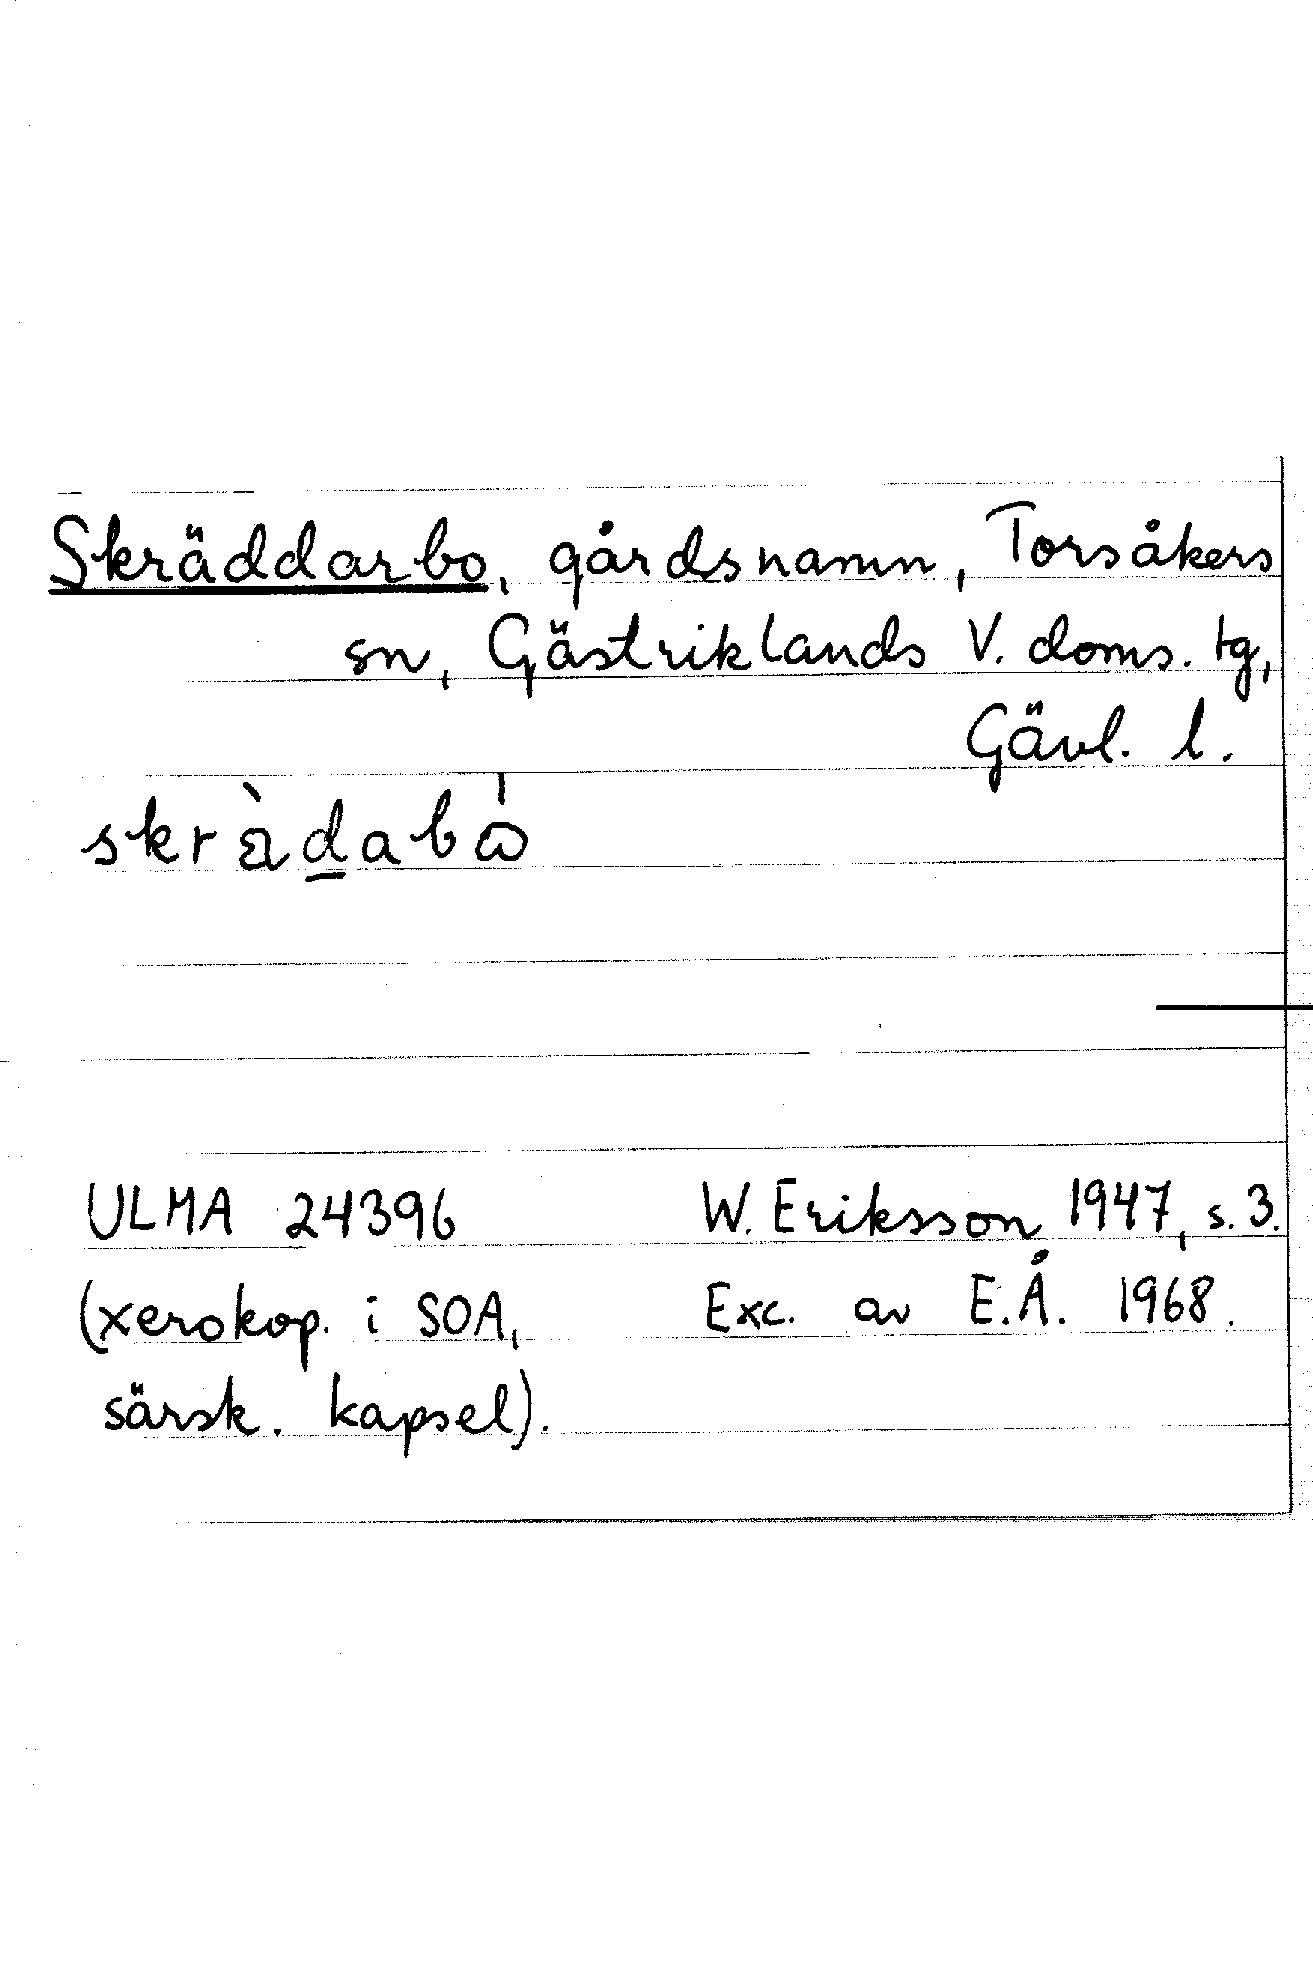 Skräddarbo, gårdsnamn, Torsåkers
sn, Gästriklands V. doms. tg,
Gävl. l.
skrädabω
ULMA 24396 W. Eriksson 1947, s. 3.
(xerokop. i SOA, Exc. av E.Å. 1968.
särsk. kapsel).